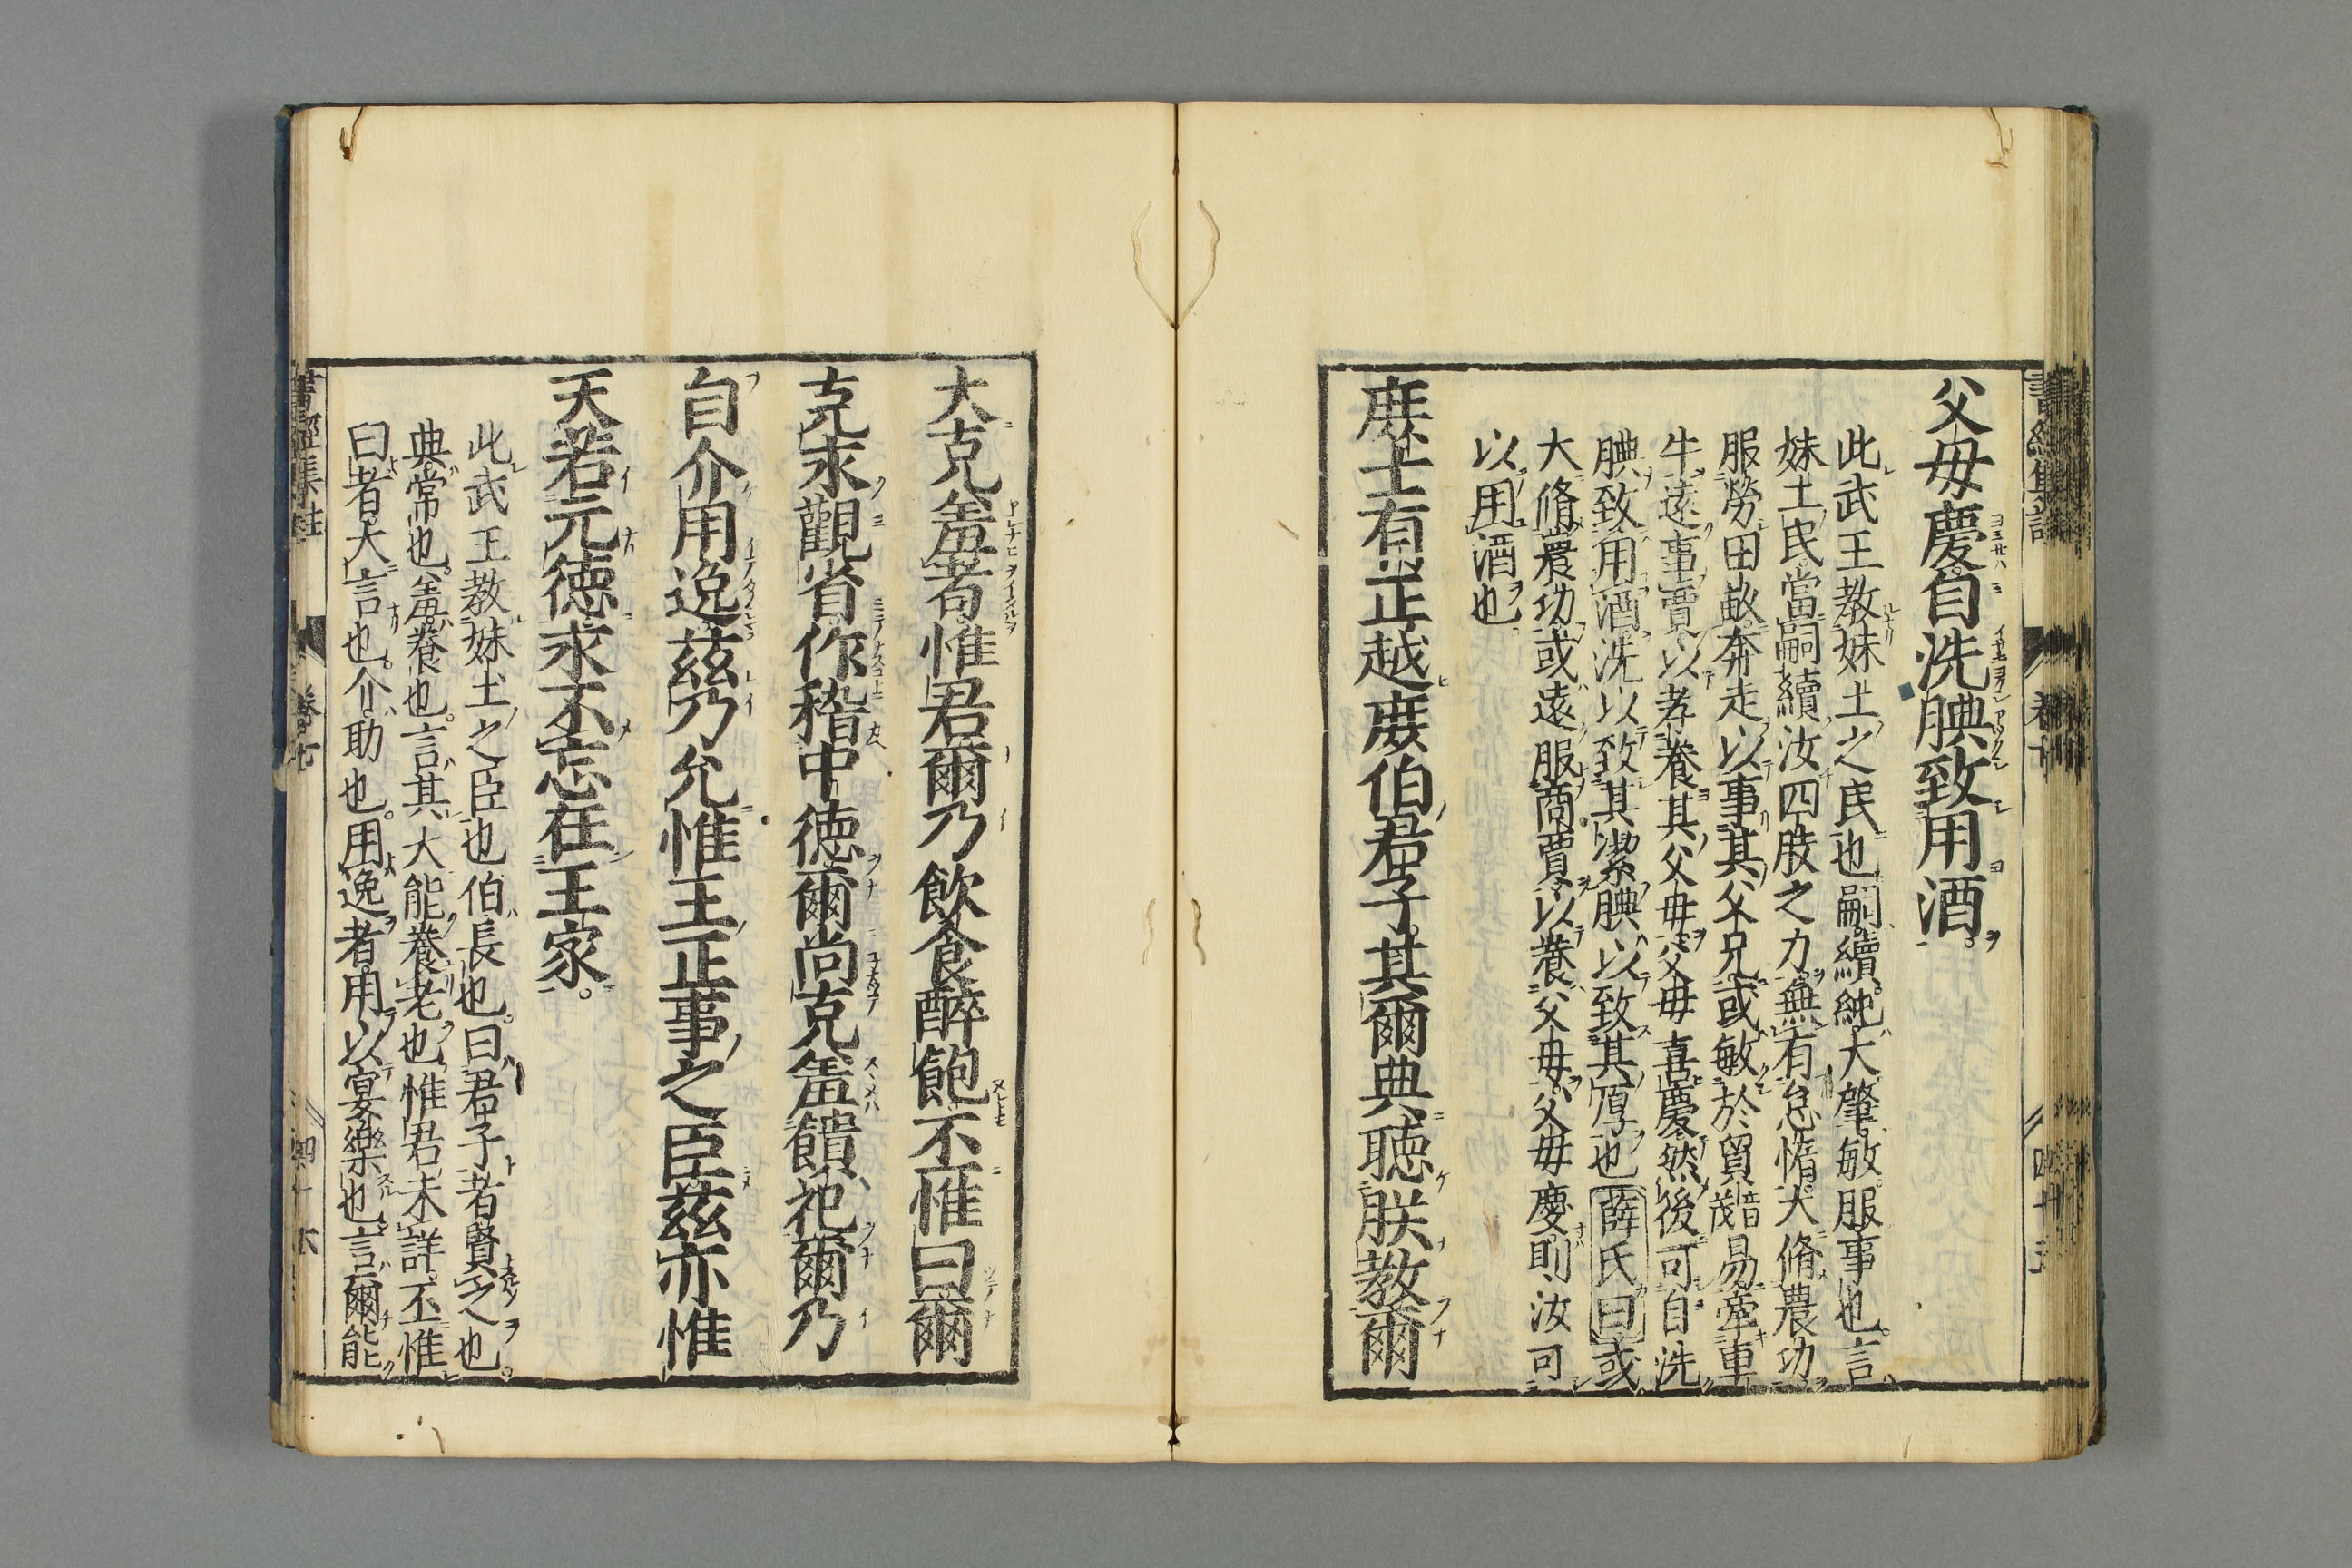 父母慶自洗腆致用酒
此武王教妹土之民也嗣續純大肇敏服事也言
妹土民當嗣續汝四肢之力無有怠惰大脩農功
服勞田畝奔走以事其父兄或敏於貿音茂易牽車
牛遠事賈以孝養其父母父母喜慶然後可自洗
腆致用酒洗以致其潔腆以致其厚也薛氏曰或
大脩農功或遠服商賈以養父母父母慶則汝可
以用酒也
庶士有正越庶伯君子其爾典聽朕教爾
大克羞耇惟君爾乃飲食醉飽丕惟曰爾
克永觀省作稽中德爾尚克羞饋祀爾乃
自介用逸茲乃允惟王正事之臣茲亦惟
天若元德永不忘在王家
此武王教妹土之臣也伯長也曰君子者賢之也
典常也羞養也言其大能養老也惟君未詳丕惟
曰者大言也介助也用逸者用以宴樂也言爾能
書經集註 卷七 四十六